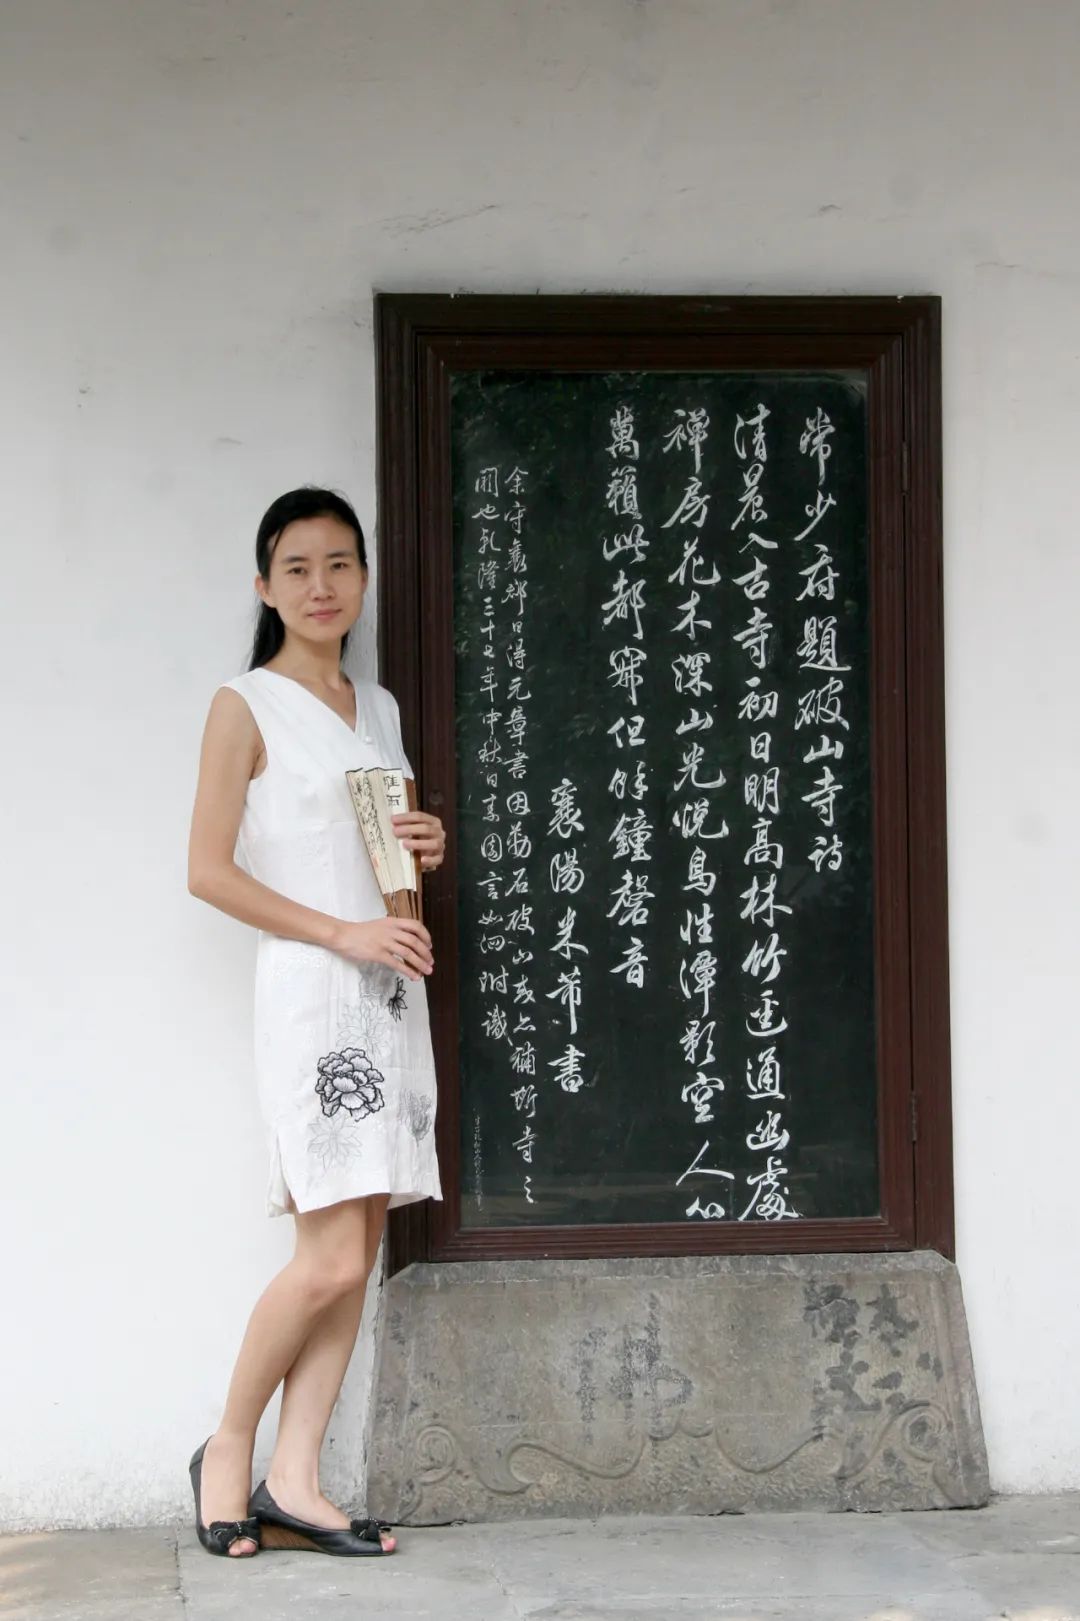 常少府題破山寺詩
清晨入古寺初日明高林竹逕通幽處
禪房花木深山光悅鳥性潭影空人心
萬籟此都寂但餘鐘磬音
襄陽米芾書
余守襄郡日得元章書因勒石破山或亦補斯寺之
闕也乾隆三十七年中秋日素園言如泗附識
佛